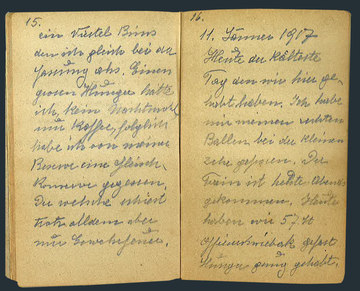 15.
ein Viertel Brins
den ich gleich bei der
Fassung ahs. Einen
grosen Hunger hatte
ich, kein Nachtmahl
nur Kaffee, folglich
habe ich von meiner
Reserve eine Fleisch-
Konserve gegessen.
Die welsche schiest
trotz alldem aber
nur Gewehrfeuer.
16.
11. Jänner 1917
Heute der kälteste
Tag den wir hier ge-
habt haben. Ich habe
mir meinen rechten
Ballen bei der kleinen
Zehe gefroren. Der
Train ist heute Abends
gekommen. Heute
haben wir
gefasst
Hunger genug gehabt.